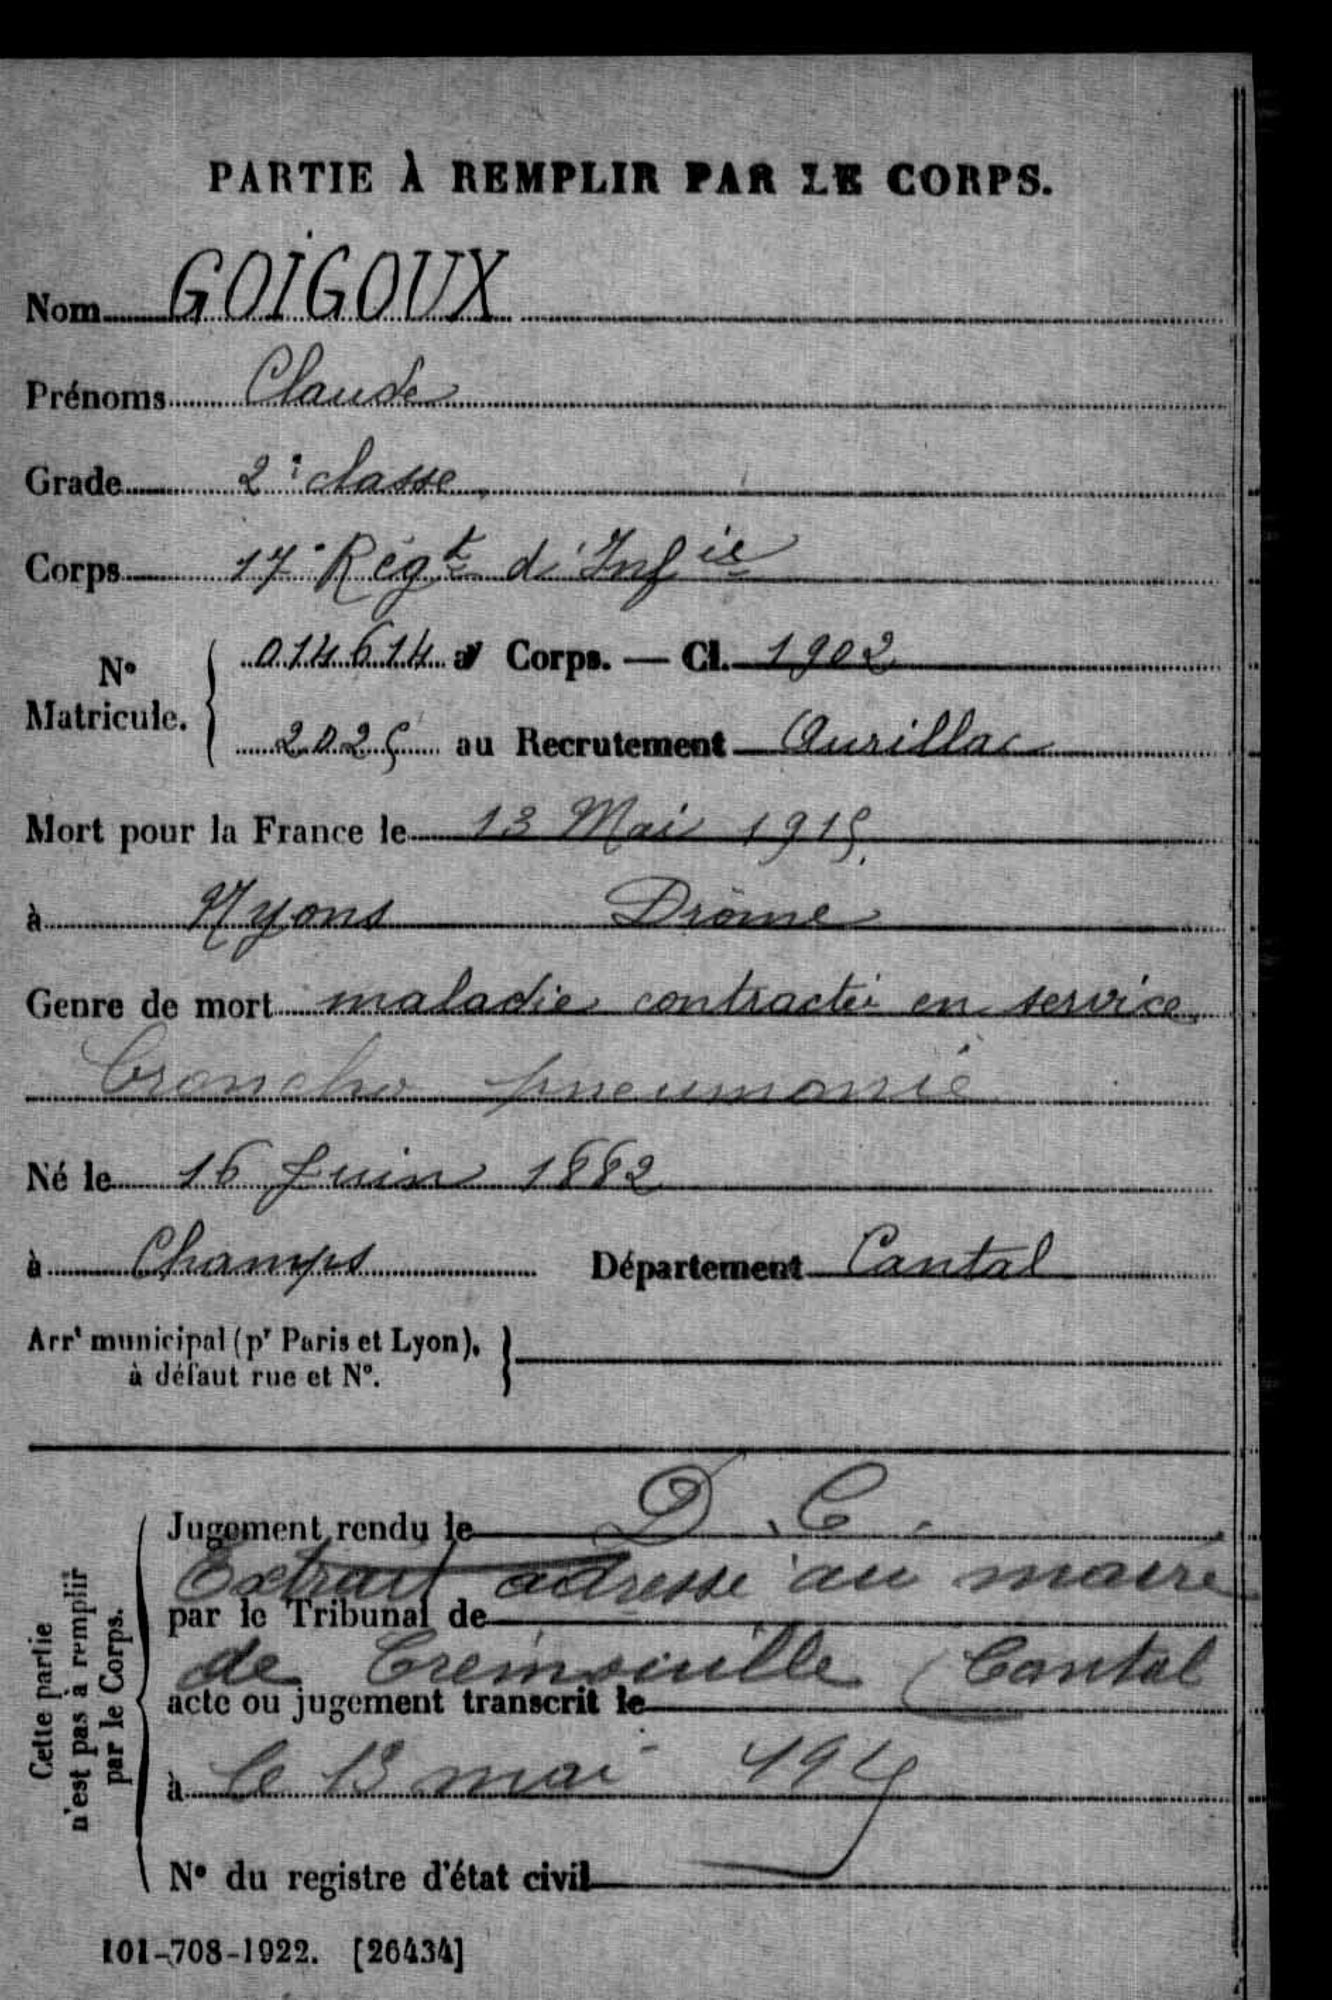 PARTIE À REMPLIR PAR LE CORPS.
Nom GOIGOUX
Prénoms Claude
Grade 2e classe
Corps 17e Régt d'Infie
N° Matricule. { 014614 au Corps. — Cl. 1902
2025 au Recrutement Aurillac
Mort pour la France le 13 Mai 1915
à Nyons Drôme
Genre de mort maladie contractée en service
broncho pneumonie
Né le 16 Juin 1882
à Champs Département Cantal
Arrt municipal (pr Paris et Lyon), à défaut rue et N°.
Cette partie n'est pas à remplir par le Corps.
Jugement rendu le D. C.
Extrait adressé au maire
par le Tribunal de
de Tremouille (Cantal
acte ou jugement transcrit le
à le 13 mai 1915
N° du registre d'état civil
101-708-1922. [26434]